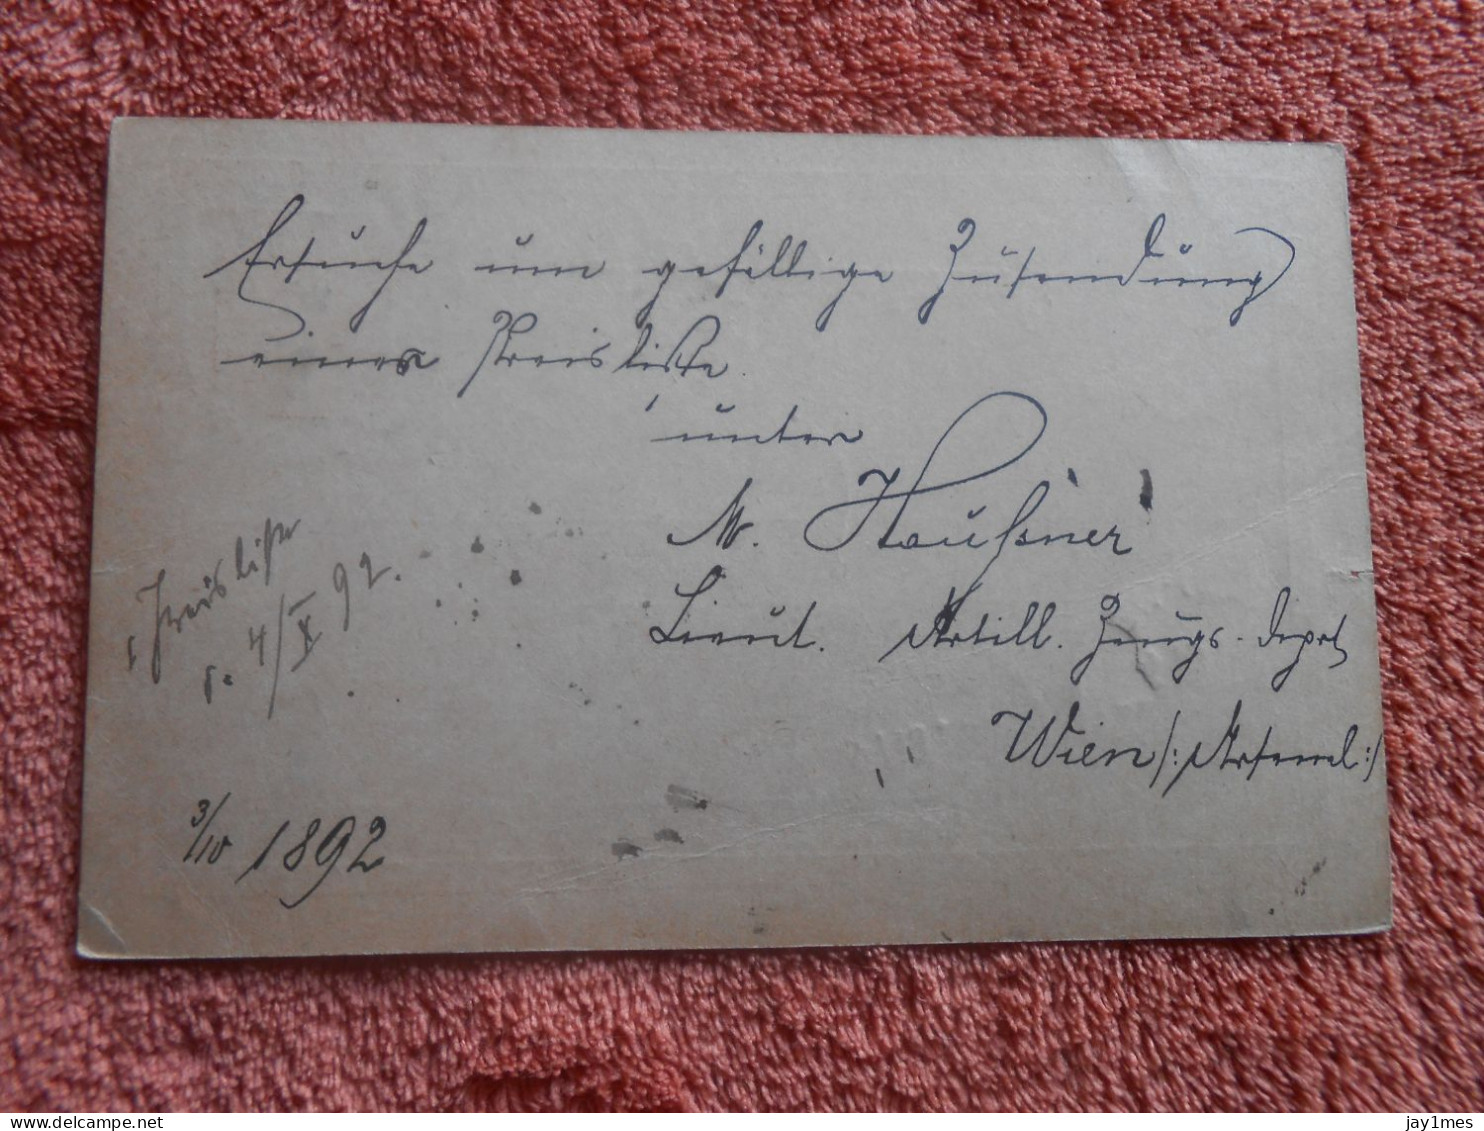 Ersuche um gefällige Zusendung
einer Preisliste
unter
M. Haußner
Lieut. Artill. Zeugs-Depot
Wien /: Arsenal :/
Preisliste
4/X 92.
3/10 1892
delcampe.net
jay1mes